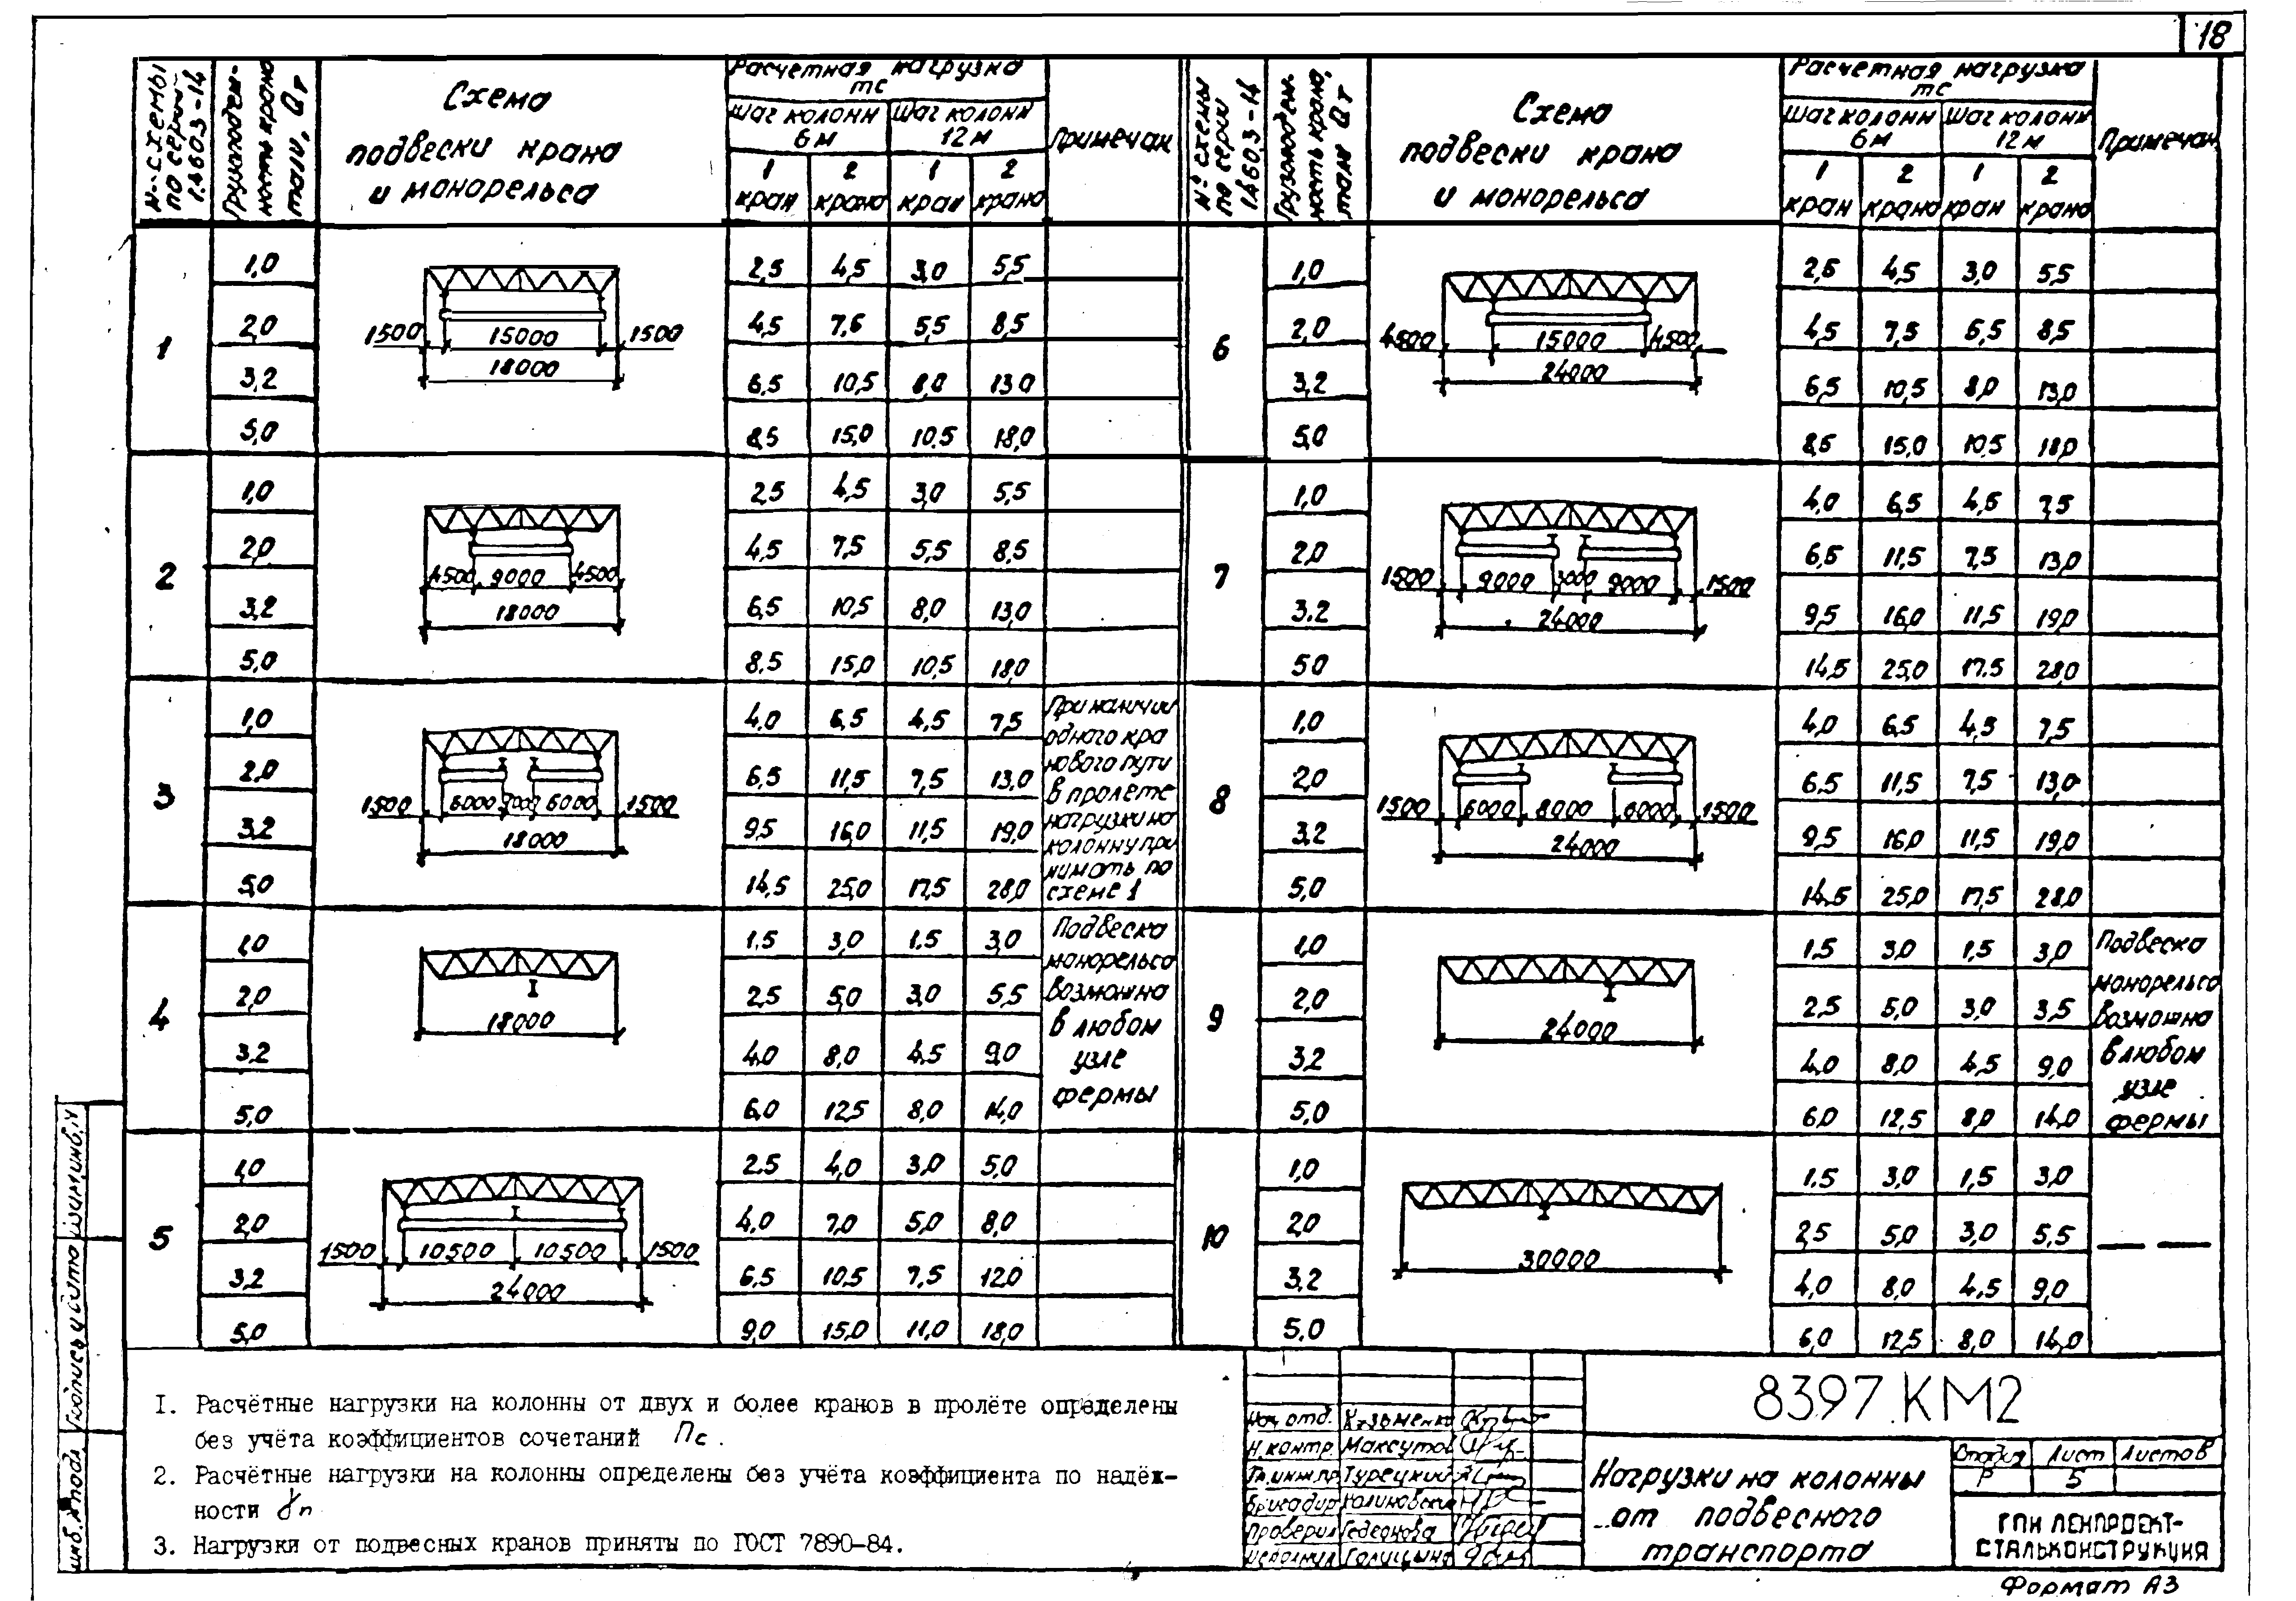 18
№ схемы по серии 1.460.3-14
Грузоподъем-ность крана, тали, Q т
Схема подвески крана и монорельса
Расчетная нагрузка тс
Шаг колонн 6м
Шаг колонн 12м
1 кран
2 крана
1 кран
2 крана
Примечан
1
1,0 2,5 4,5 3,0 5,5
2,0 4,5 7,5 5,5 8,5
3,2 6,5 10,5 8,0 13,0
5,0 8,5 15,0 10,5 18,0
1500 15000 1500
18000
2
1,0 2,5 4,5 3,0 5,5
2,0 4,5 7,5 5,5 8,5
3,2 6,5 10,5 8,0 13,0
5,0 8,5 15,0 10,5 18,0
4500 9000 4500
18000
3
1,0 4,0 6,5 4,5 7,5
2,0 6,5 11,5 7,5 13,0
3,2 9,5 16,0 11,5 19,0
5,0 14,5 25,0 17,5 28,0
1500 6000 3000 6000 1500
18000
При наличии
одного кра
нового пути
в пролете
нагрузки на
колонну при
нимать по
схеме 1
4
1,0 1,5 3,0 1,5 3,0
2,0 2,5 5,0 3,0 5,5
3,2 4,0 8,0 4,5 9,0
5,0 6,0 12,5 8,0 14,0
18000
Подвеска
монорельса
возможна
в любом
узле
фермы
5
1,0 2,5 4,0 3,0 5,0
2,0 4,0 7,0 5,0 8,0
3,2 6,5 10,5 7,5 12,0
5,0 9,0 15,0 11,0 18,0
1500 10500 10500 1500
24000
№ схемы по серии 1.460.3-14
Грузоподъем-ность крана, тали Q т
Схема подвески крана и монорельса
Расчетная нагрузка тс
Шаг колонн 6м
Шаг колонн 12м
1 кран
2 крана
1 кран
2 крана
Примечан
6
1,0 2,5 4,5 3,0 5,5
2,0 4,5 7,5 5,5 8,5
3,2 6,5 10,5 8,0 13,0
5,0 8,5 15,0 10,5 18,0
4500 15000 4500
24000
7
1,0 4,0 6,5 4,5 7,5
2,0 6,5 11,5 7,5 13,0
3.2 9,5 16,0 11,5 19,0
5,0 14,5 25,0 17,5 28,0
1500 9000 3000 9000 1500
24000
8
1,0 4,0 6,5 4,5 7,5
2,0 6,5 11,5 7,5 13,0
3,2 9,5 16,0 11,5 19,0
5,0 14,5 25,0 17,5 28,0
1500 6000 8000 6000 1500
24000
9
1,0 1,5 3,0 1,5 3,0
2,0 2,5 5,0 3,0 3,5
3,2 4,0 8,0 4,5 9,0
5,0 6,0 12,5 8,0 14,0
24000
Подвеска
монорельса
возможна
в любом
узле
фермы
10
1,0 1,5 3,0 1,5 3,0
2,0 2,5 5,0 3,0 5,5
3,2 4,0 8,0 4,5 9,0
5,0 6,0 12,5 8,0 14,0
30000
— —
1. Расчётные нагрузки на колонны от двух и более кранов в пролёте определены
без учёта коэффициентов сочетаний nс.
2. Расчётные нагрузки на колонны определены без учёта коэффициента по надёж-
ности γп
3. Нагрузки от подвесных кранов приняты по ГОСТ 7890-84.
Инв. № подл Подпись и дата Взам.инв.№
Нач отд. Кузьменко
Н.контр. Максутов
Гл.инж.пр Турецкий
Бригадир
Проверил Гедеонова
Исполнил Голицына
8397.КМ2
Нагрузки на колонны
от подвесного
транспорта
Стадия Лист Листов
Р 5
ГПИ ЛЕНПРОЕКТ-
СТАЛЬКОНСТРУКЦИЯ
Формат А3